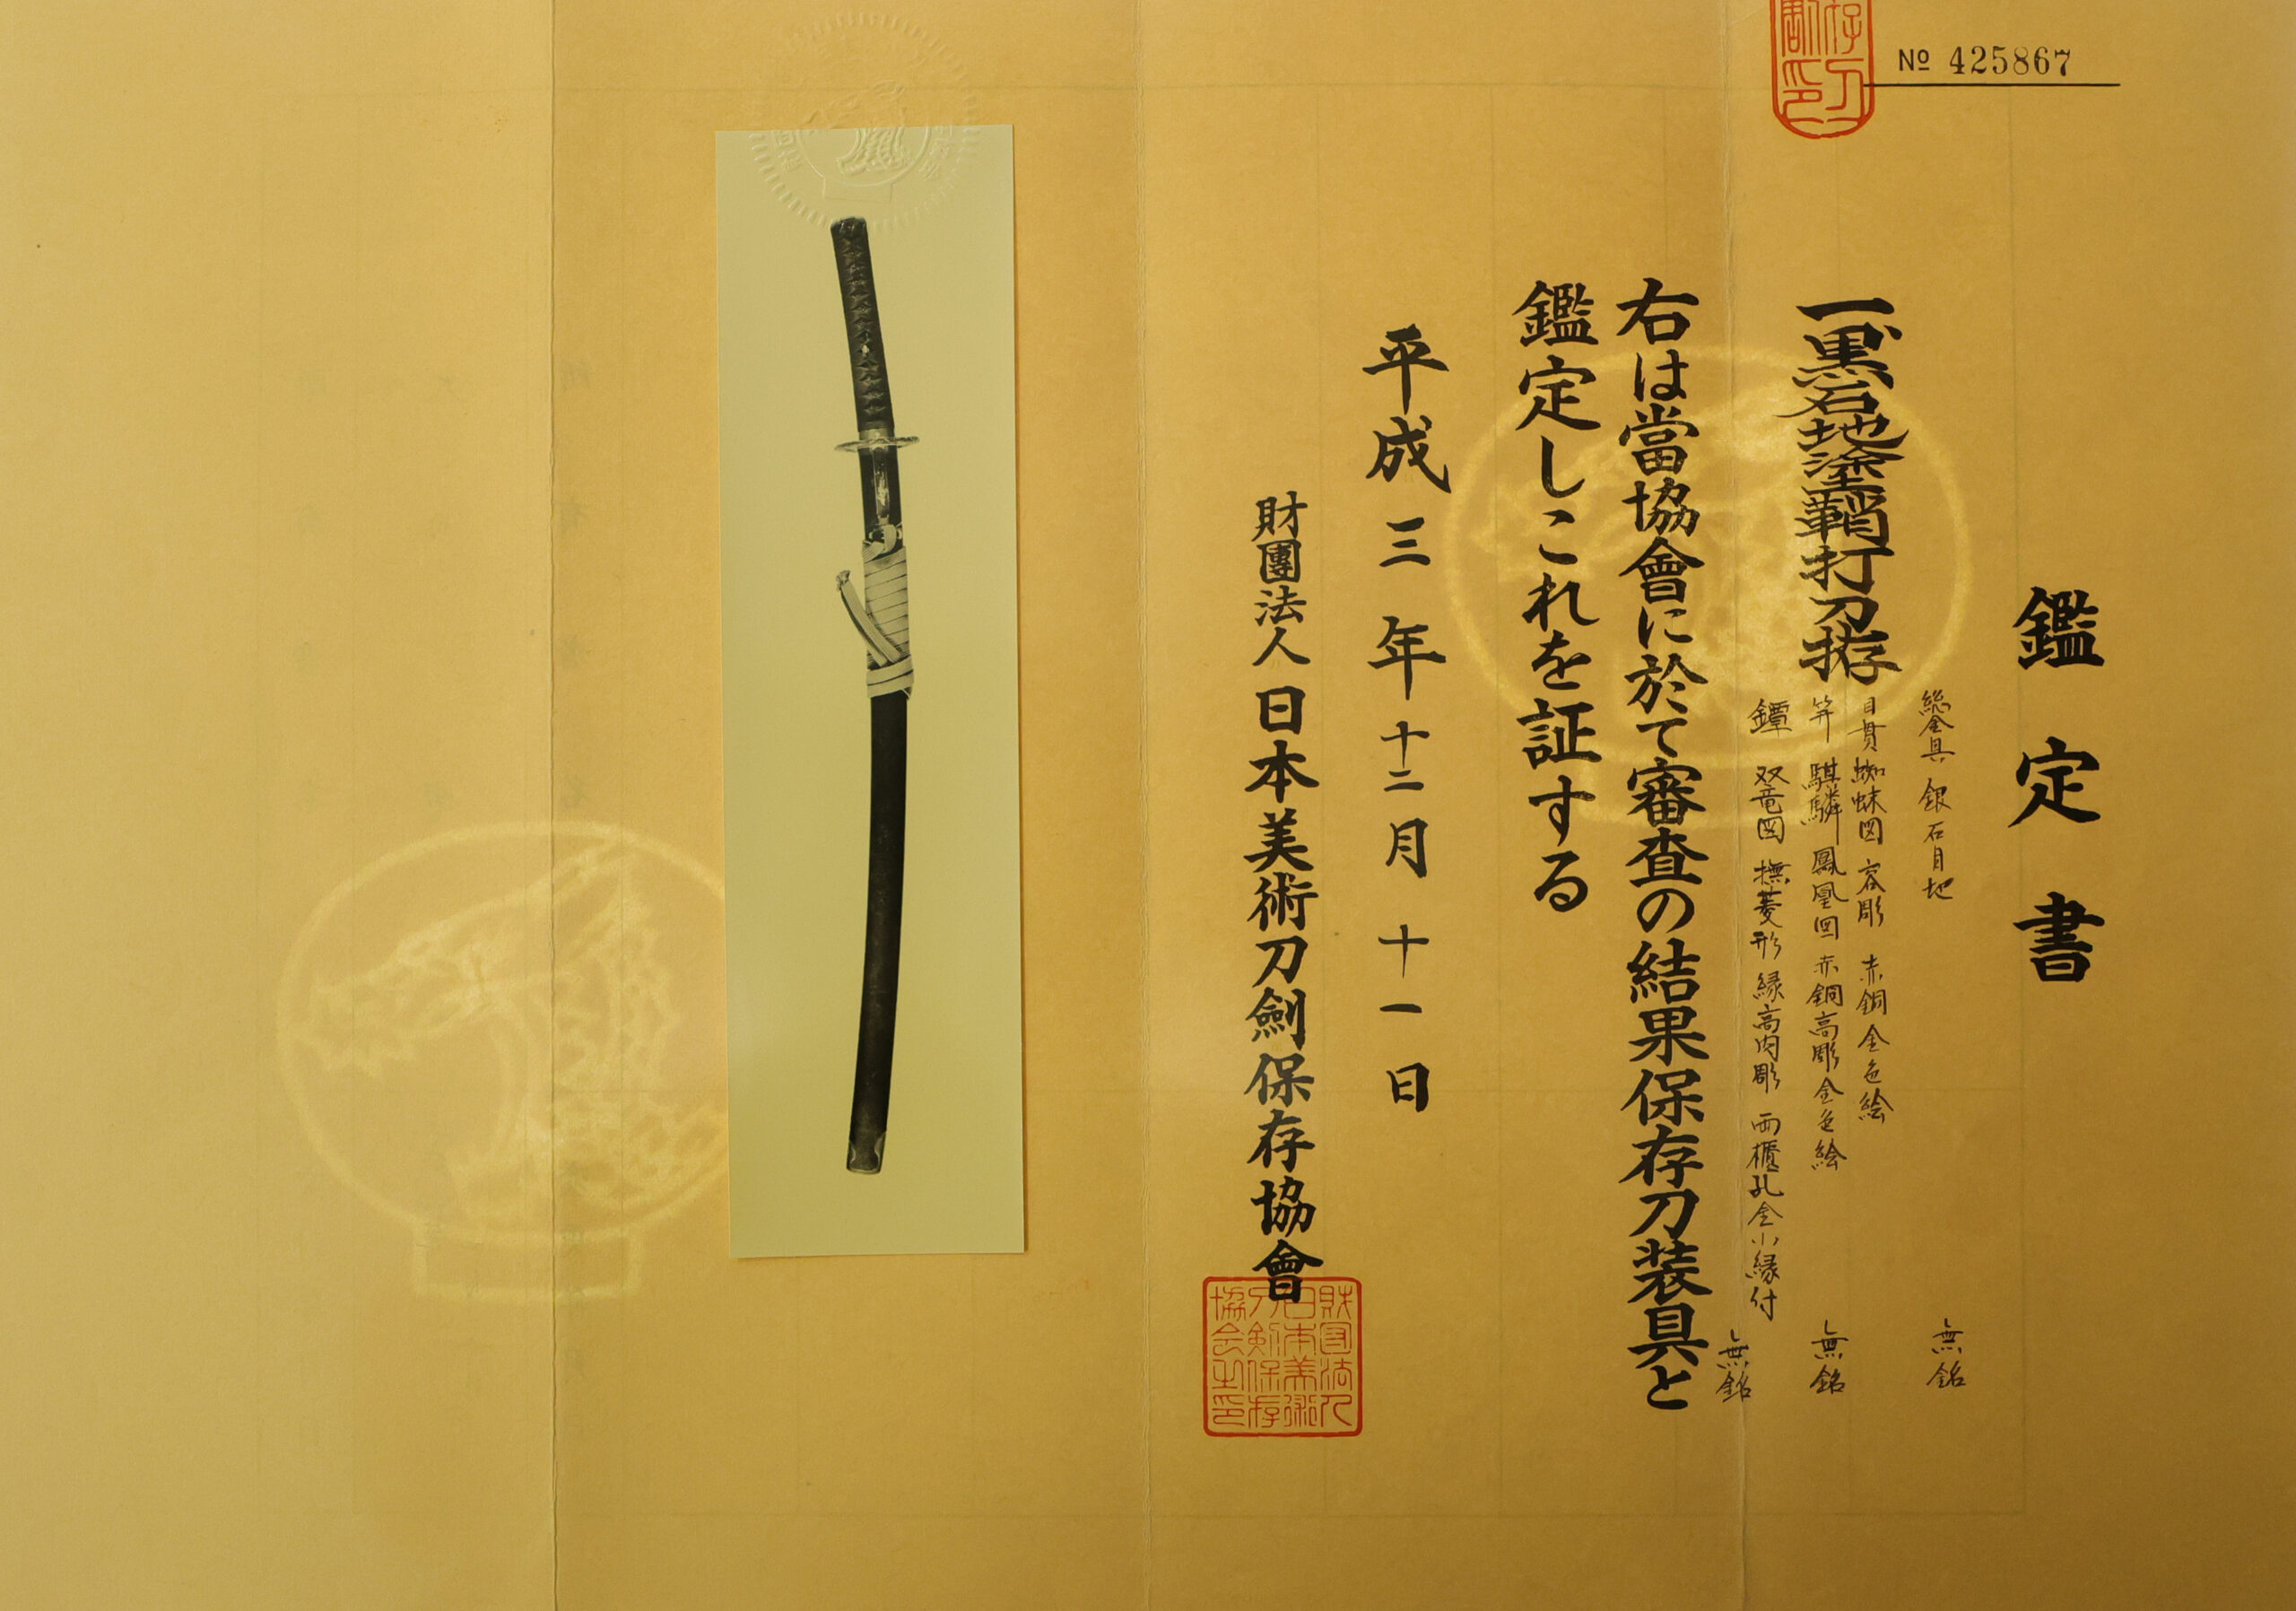 No 425867
鑑定書
一黒石地塗鞘打刀拵
総金具 銀石目地 無銘
目貫 蜘蛛図 容彫 赤銅金色絵
笄 騏驎鳳凰図 赤銅高彫金色絵 無銘
鐔 双竜図 撫菱形 縁高肉彫 両櫃孔金小縁付 無銘
右は當協會に於て審査の結果保存刀装具と
鑑定しこれを証する
平成三年十二月十一日
財團法人日本美術刀劍保存協會
財団法人
日本美術
刀剣保存
協会之印